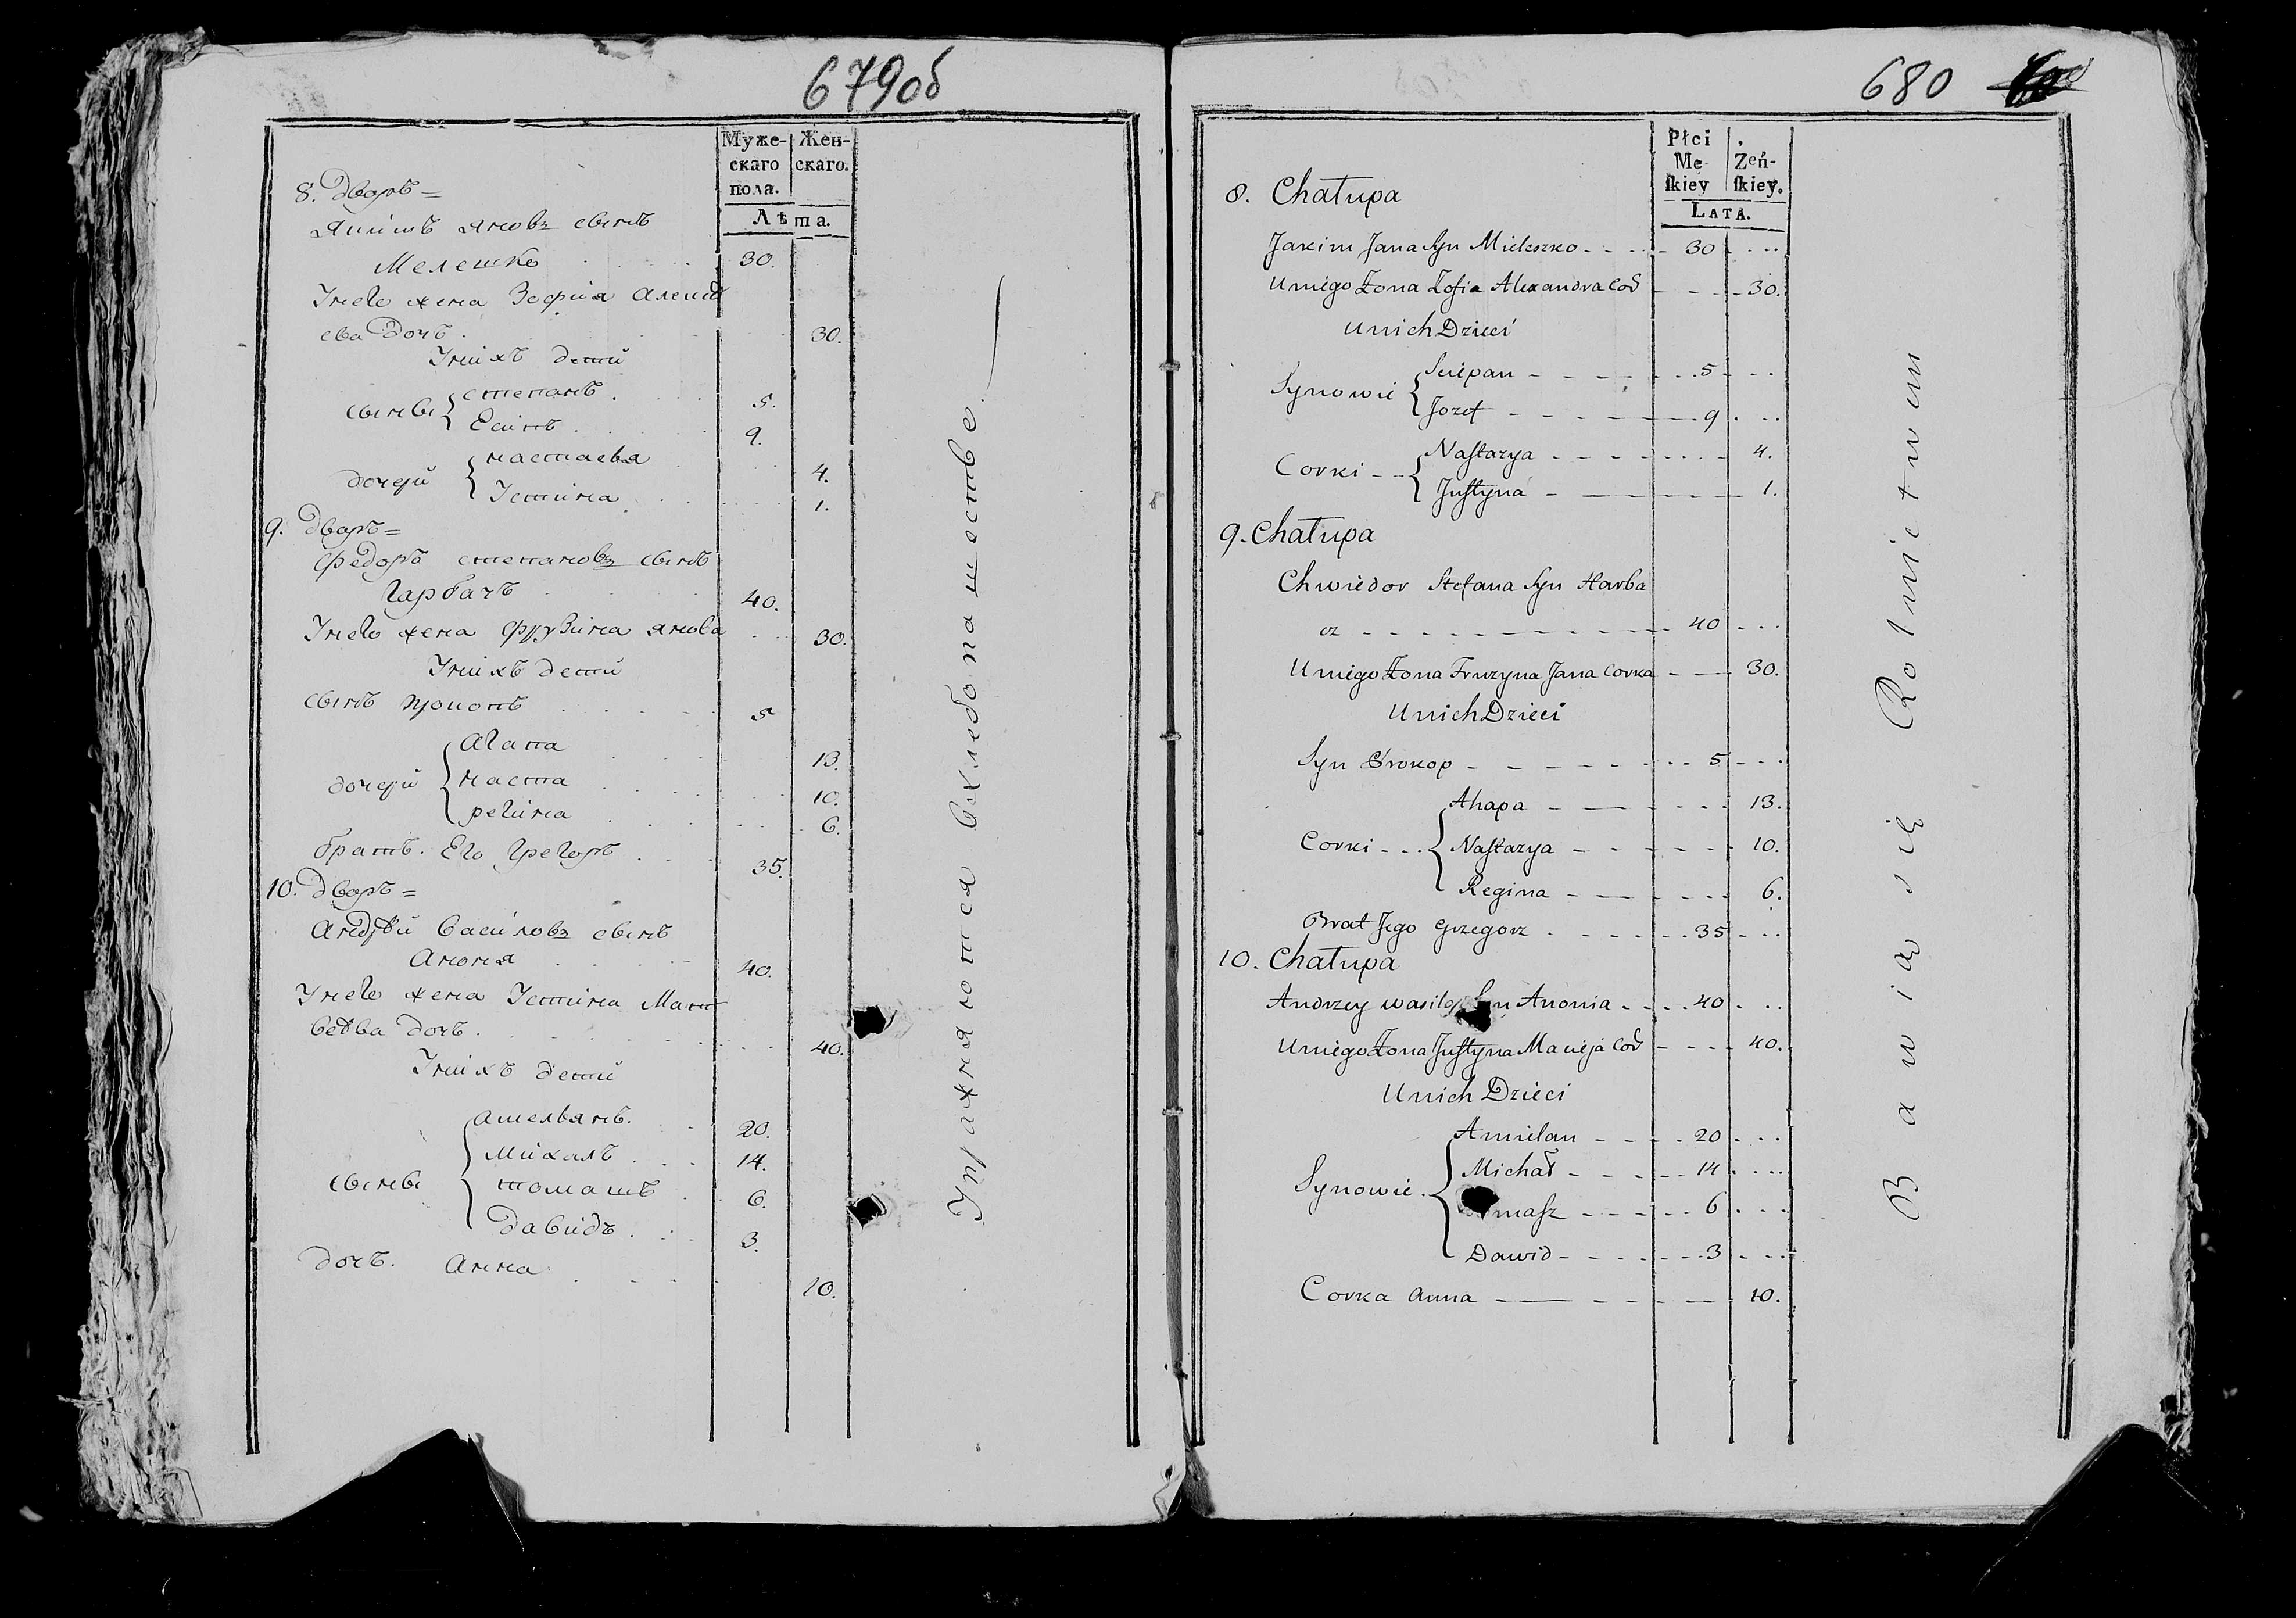 679об
Муже-
скаго
пола.
Жен-
скаго.
Лѣта.
8. Дворъ =
Якимъ яновъ сынъ
Мелешко 30.
Унего жена Зофия Алексѣ
ева дочъ 30.
Унихъ дети
сынве { степанъ 5.
Есипъ 9.
дочери { настасья 4.
Устина 1.
9. Дворъ =
Федоръ степановъ сынъ
Гарбачъ 40.
Унего жена фрузина янова 30.
Унихъ дети
сынъ прокопъ 5
дочери { Агапа 13.
наста 10.
регина 6.
братъ Его Грегоръ 35.
10. Дворъ =
Андрѣй Василовъ сынъ
Аноня 40.
Унего жена Устина Мат
вѣева дочъ 40.
Унихъ дети
сынве { амельянъ 20.
михалъ 14.
томашъ 6.
давидъ 3.
дочъ Анна 10.
Упражняются вхлебопашостве
680
Płci
Mę
skiey
Żeń-
skiey.
LATA.
8. Chałupa
Jakim Jana Syn Mieleszko 30
Uniego Żona Zofia Alexandra Cor 30.
Unich Dzieci
Synowie { Sciepan 5
Jozef 9
Corki { Nastazya 4.
Justyna 1.
9. Chałupa
Chwiedor Stefana Syn Harba
cz 40
Uniego Żona Fruzyna Jana Corka 30.
Unich Dzieci
Syn Prokop 5
Corki { Ahapa 13.
Nastazya 10.
Regina 6.
Brat Jego Grzegorz 35
10. Chałupa
Andrzey Anonia 40
Uniego Żona Justyna Macieja Cor 40.
Unich Dzieci
Synowie { Amielan 20
Michał 14
masz 6
Dawid 3
Corka Anna 10.
Bawią się Rolnictwem